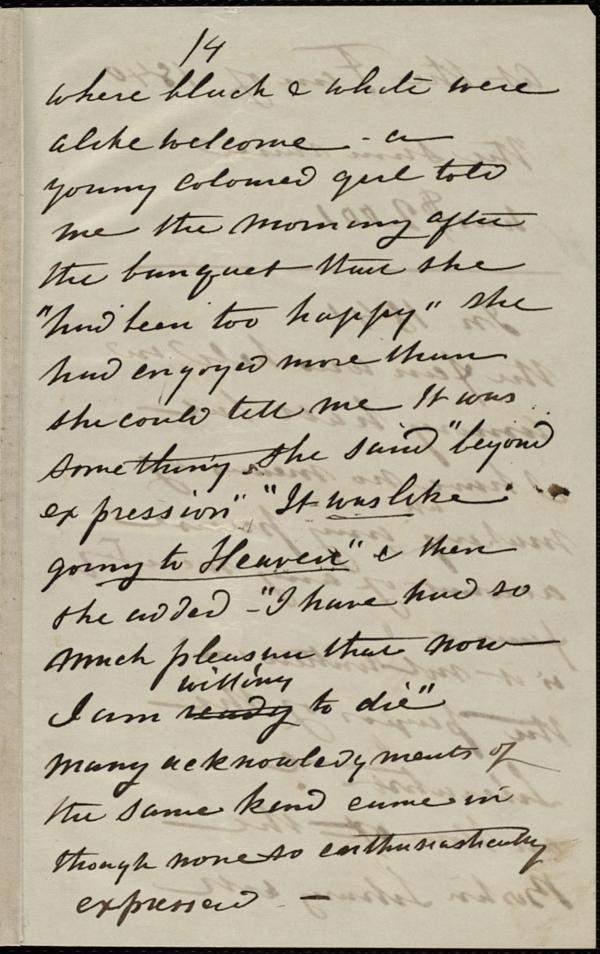 14
where black & white were
alike welcome - a
young coloured girl told
me the morning after
the banquet that she
"had been too happy" she
had enjoyed more than
she could tell me It was
something she said "beyond
expression" "It was like
going to Heaven" & then
she added - "I have had so
much pleasure that now
willing
I am ready to die"
many acknowledgments of
the same kind came in
though none so enthusiastically
expressed —